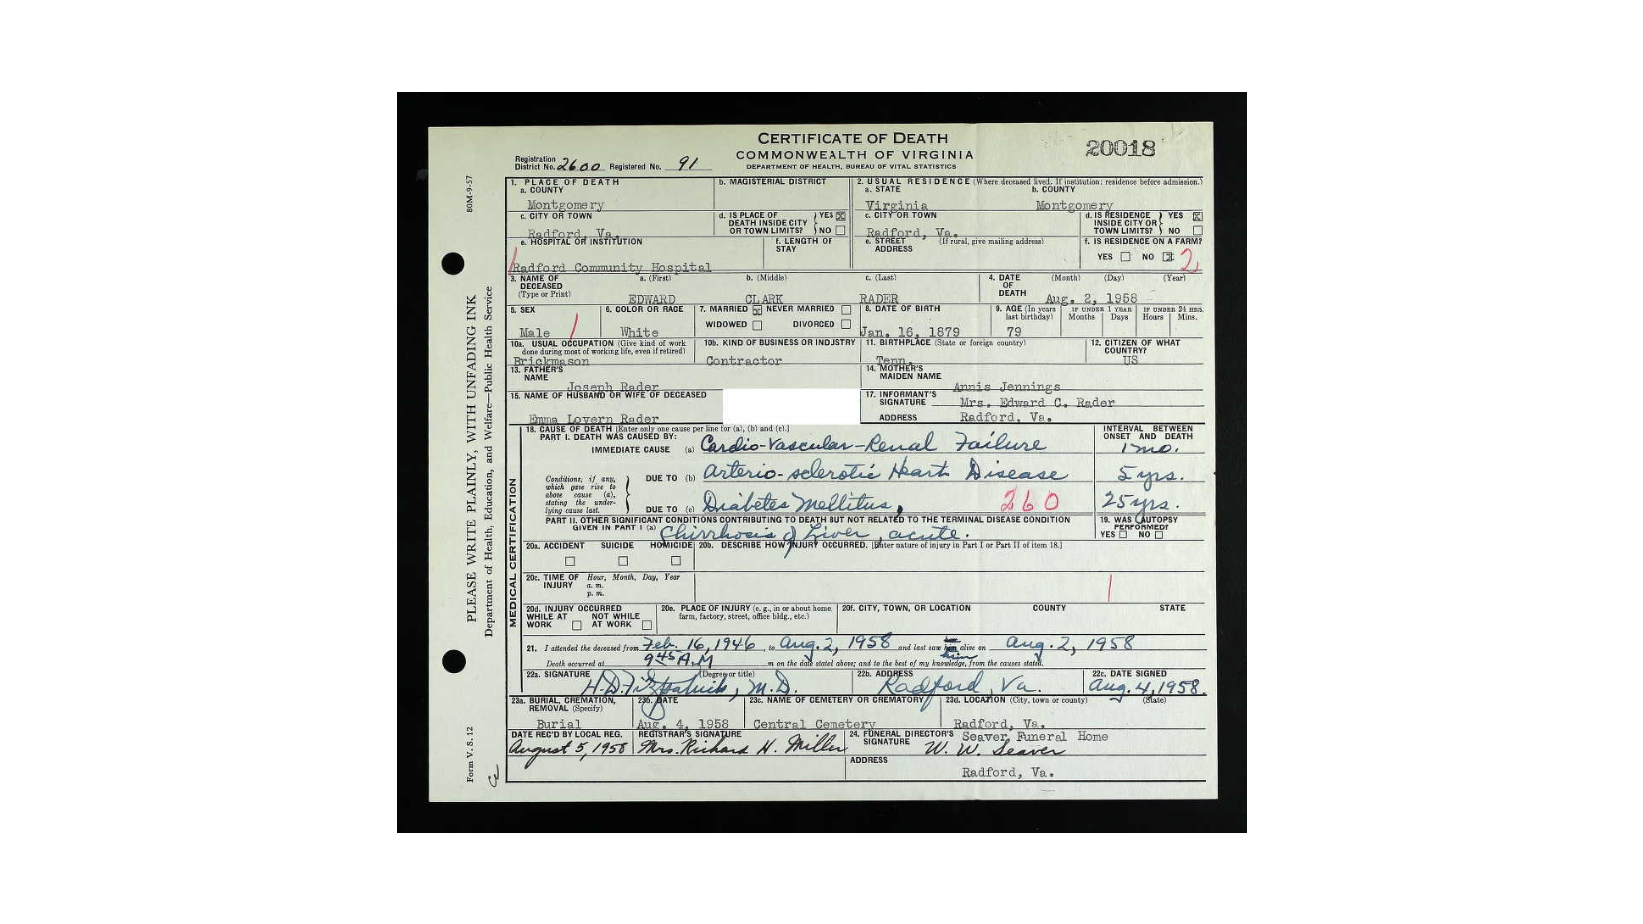 CERTIFICATE OF DEATH
COMMONWEALTH OF VIRGINIA
DEPARTMENT OF HEALTH, BUREAU OF VITAL STATISTICS
20018
Registration District No. 2600 Registered No. 91
80M-9-57
PLEASE WRITE PLAINLY, WITH UNFADING INK
Department of Health, Education, and Welfare—Public Health Service
Form V. S. 12
1. PLACE OF DEATH
a. COUNTY
Montgomery
b. MAGISTERIAL DISTRICT
2. USUAL RESIDENCE (Where deceased lived. If institution: residence before admission.)
a. STATE b. COUNTY
Virginia Montgomery
c. CITY OR TOWN
Radford, Va.
d. IS PLACE OF DEATH INSIDE CITY OR TOWN LIMITS? YES ☒ NO ☐
c. CITY OR TOWN
Radford, Va.
d. IS RESIDENCE INSIDE CITY OR TOWN LIMITS? YES ☒ NO ☐
e. HOSPITAL OR INSTITUTION
Radford Community Hospital
f. LENGTH OF STAY
e. STREET ADDRESS (If rural, give mailing address)
f. IS RESIDENCE ON A FARM?
YES ☐ NO ☒ 2
3. NAME OF DECEASED (Type or Print)
a. (First) b. (Middle) c. (Last)
EDWARD CLARK RADER
4. DATE OF DEATH (Month) (Day) (Year)
Aug. 2, 1958
5. SEX
Male 1
6. COLOR OR RACE
White
7. MARRIED ☒ NEVER MARRIED ☐
WIDOWED ☐ DIVORCED ☐
8. DATE OF BIRTH
Jan. 16, 1879
9. AGE (In years last birthday)
79
IF UNDER 1 YEAR Months Days
IF UNDER 24 HRS. Hours Mins.
10a. USUAL OCCUPATION (Give kind of work done during most of working life, even if retired)
Brickmason
10b. KIND OF BUSINESS OR INDUSTRY
Contractor
11. BIRTHPLACE (State or foreign country)
Tenn.
12. CITIZEN OF WHAT COUNTRY?
US
13. FATHER'S NAME
Joseph Rader
14. MOTHER'S MAIDEN NAME
Annis Jennings
15. NAME OF HUSBAND OR WIFE OF DECEASED
Emma Lovern Rader
17. INFORMANT'S SIGNATURE Mrs. Edward C. Rader
ADDRESS Radford, Va.
MEDICAL CERTIFICATION
18. CAUSE OF DEATH [Enter only one cause per line for (a), (b) and (c).]
INTERVAL BETWEEN ONSET AND DEATH
PART I. DEATH WAS CAUSED BY:
IMMEDIATE CAUSE (a) Cardio-Vascular-Renal Failure 1 mo.
Conditions, if any, which gave rise to above cause (a), stating the underlying cause last.
DUE TO (b) Arterio-sclerotic Heart Disease 5 yrs.
DUE TO (c) Diabetes Mellitus, 260 25 yrs.
PART II. OTHER SIGNIFICANT CONDITIONS CONTRIBUTING TO DEATH BUT NOT RELATED TO THE TERMINAL DISEASE CONDITION GIVEN IN PART I (a)
Chirrhosis of Liver, acute.
19. WAS AUTOPSY PERFORMED?
YES ☐ NO ☐
20a. ACCIDENT SUICIDE HOMICIDE
☐ ☐ ☐
20b. DESCRIBE HOW INJURY OCCURRED. (Enter nature of injury in Part I or Part II of item 18.)
20c. TIME OF INJURY Hour, Month, Day, Year
a. m.
p. m.
20d. INJURY OCCURRED
WHILE AT WORK ☐ NOT WHILE AT WORK ☐
20e. PLACE OF INJURY (e. g., in or about home, farm, factory, street, office bldg., etc.)
20f. CITY, TOWN, OR LOCATION COUNTY STATE
21. I attended the deceased from Feb. 16, 1946, to Aug. 2, 1958 and last saw him alive on Aug. 2, 1958
Death occurred at 9:45 A.M m on the date stated above; and to the best of my knowledge, from the causes stated.
22a. SIGNATURE (Degree or title)
H.D. Fitzpatrick, M.D.
22b. ADDRESS
Radford, Va.
22c. DATE SIGNED
Aug. 4, 1958.
23a. BURIAL, CREMATION, REMOVAL (Specify)
Burial
23b. DATE
Aug. 4, 1958
23c. NAME OF CEMETERY OR CREMATORY
Central Cemetery
23d. LOCATION (City, town or county) (State)
Radford, Va.
DATE REC'D BY LOCAL REG.
August 5, 1958
REGISTRAR'S SIGNATURE
Mrs. Richard H. Miller
24. FUNERAL DIRECTOR'S SIGNATURE Seaver Funeral Home
W. W. Seaver
ADDRESS
Radford, Va.